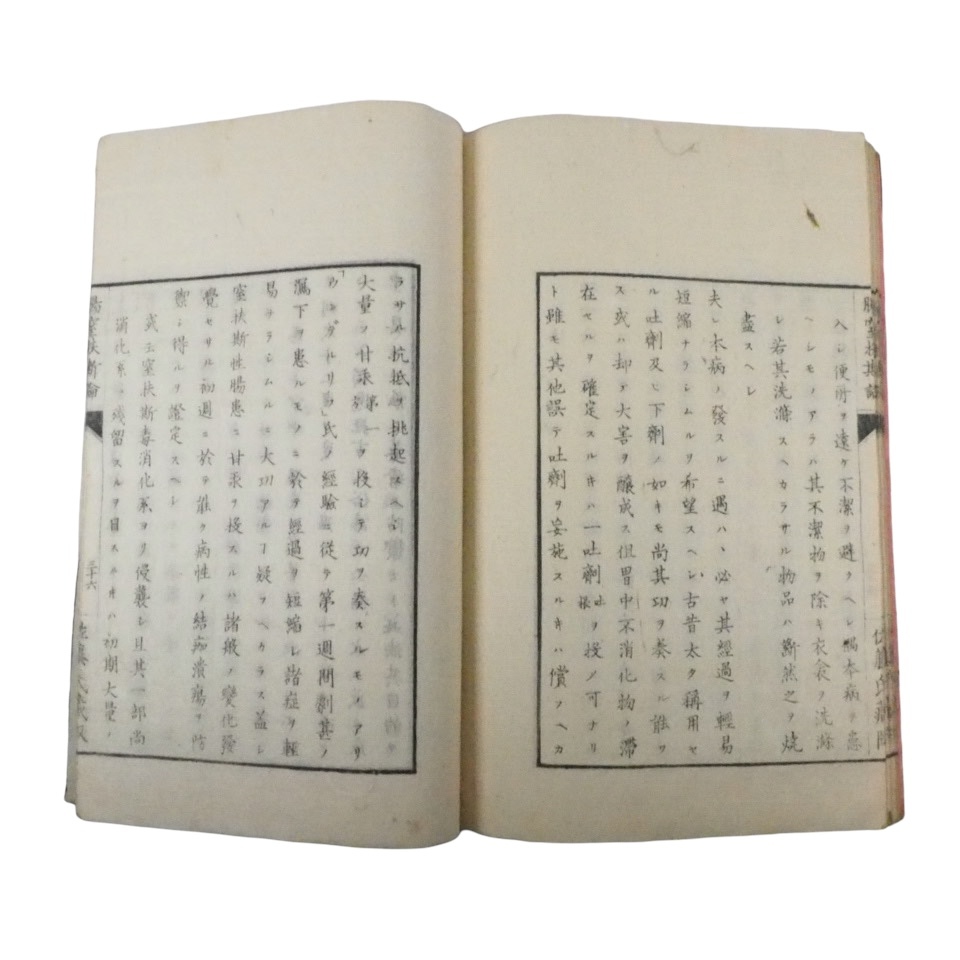 入レ便所ヲ遠ケ不潔ヲ避クヘシ
ヘシモノアラハ其不潔物ヲ除キ衣衾ヲ洗滌
レ若其洗滌スヘカラサル物品ハ断然之ヲ焼
盡スヘレ
夫レ本病ノ發スルニ遇ハヽ必ヤ其經過ヲ輕易
短縮ナラシムルヲ希望スヘレ古昔太タ稱用セ
ル吐劑及ヒ下劑ノ如キモ尚其功ヲ奏スル能ハ
ス或ハ却テ大害ヲ醸成ス但胃中不消化物ノ滞
在セルヲ確定スルキハ一吐劑ヲ投ノ可ナリ
ト雖モ其他誤テ吐劑ヲ妄施スルキハ償フヘカ
ラサル抗抵ヲ挑起スヘシ
大量ノ甘汞第一ヲ投シテ功ヲ奏スルモノアリ
氏ノ經驗ニ從ヲ第一週間劇甚ノ
瀉下ヲ患ルモノニ於ヲ經過ヲ短縮レ諸症ヲ輕
易ヲラシムルニ大功アルヿ疑ヲヘカラス蓋レ
窒扶斯性腸患ニ甘汞ヲ投スルハ諸般ノ變化發
覺セサル初週ニ於テ能ク病性ノ結痂潰瘍ヲ防
禦シ得ルヲ證定スヘシ
或エ窒扶斯毒消化系ヲノ侵襲シ且其一部尚
消化系ニ殘留スルヲ目スルキハ初期大量ノ
腸窒扶斯論
三十六